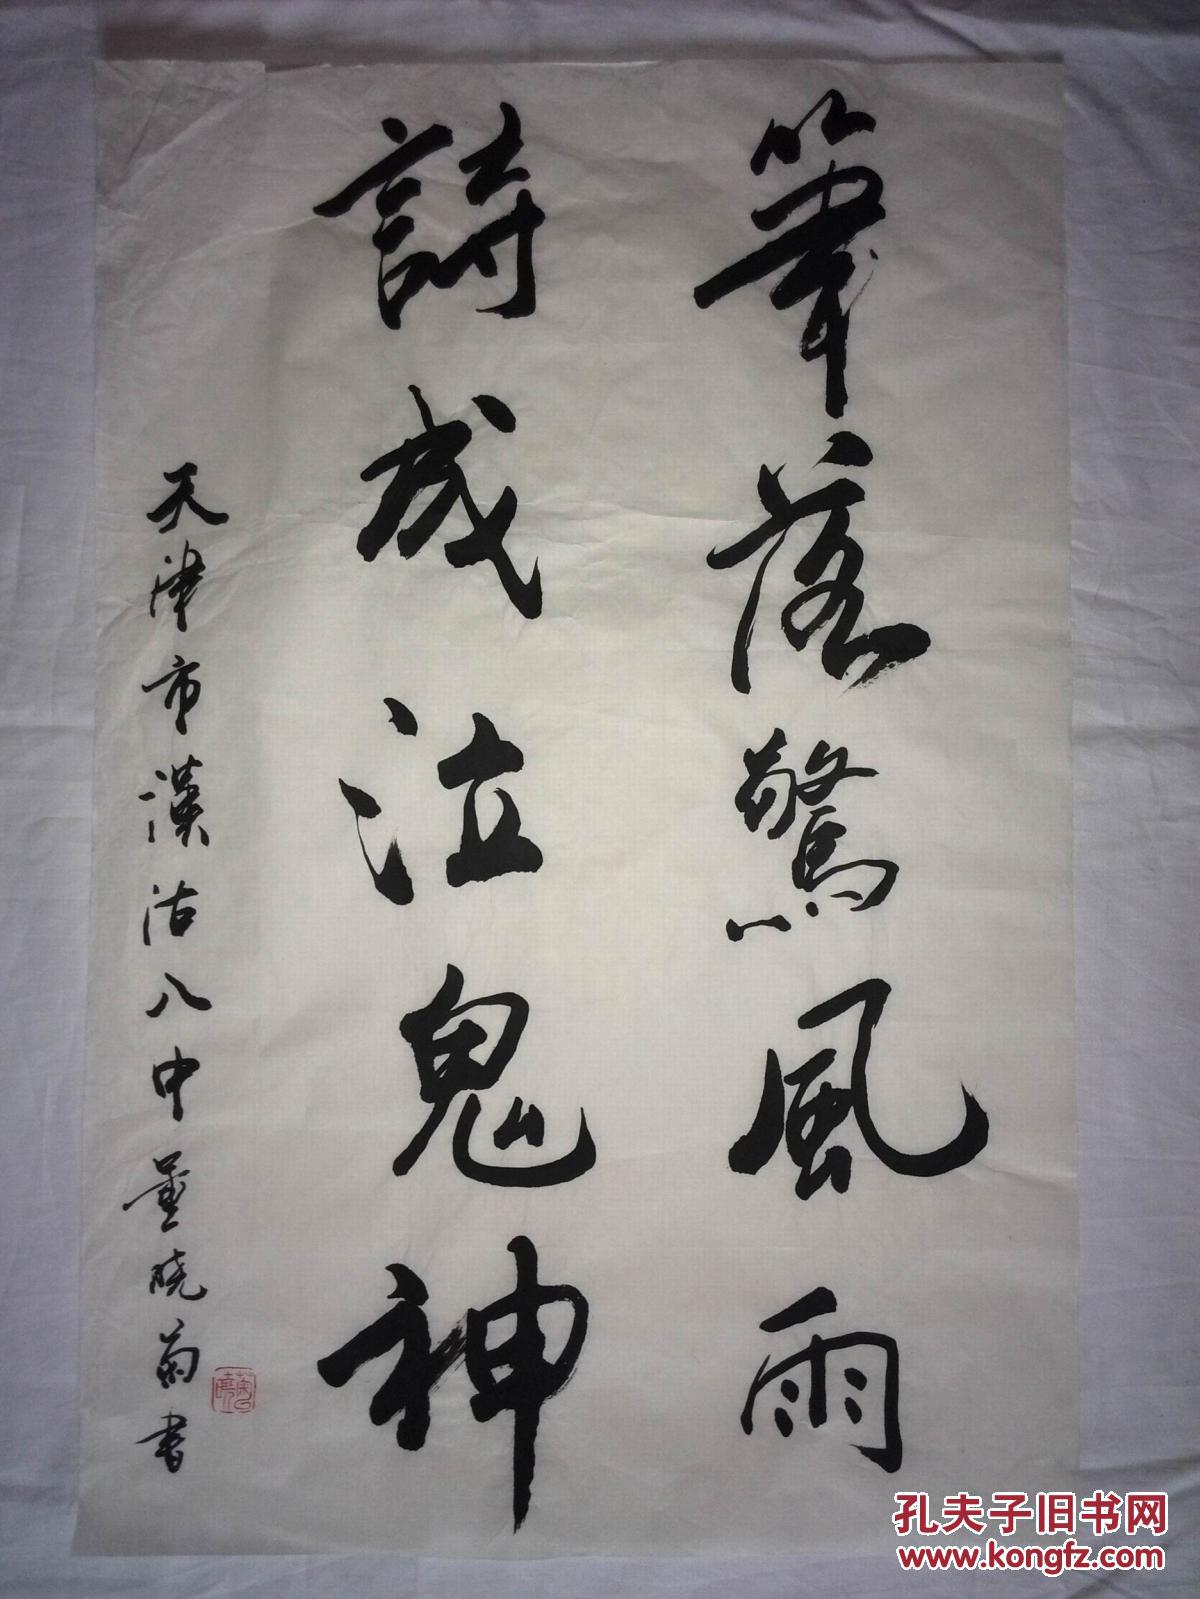 筆落驚風雨
詩成泣鬼神
天津市漢沽八中董晓菊書
孔夫子旧书网
www.kongfz.com